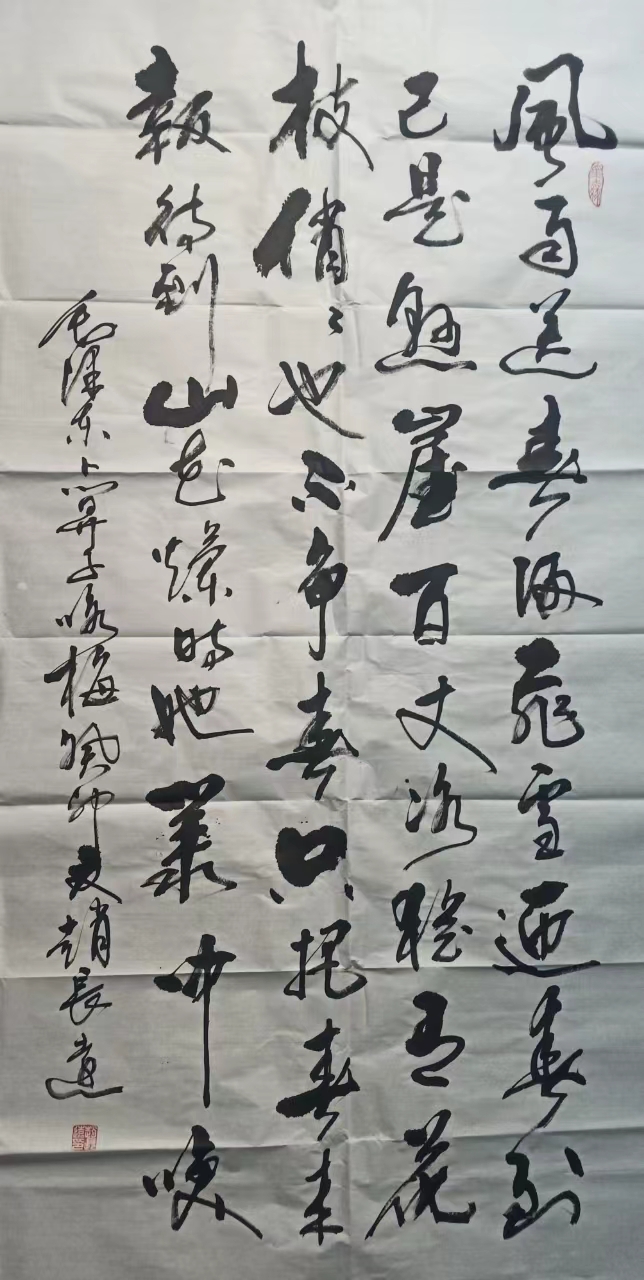 風雨送春歸飛雪迎春到
已是懸崖百丈冰猶有花
枝俏〻也不争春只把春来
報待到山花爛時她叢中咲
毛澤东卜算子咏梅癸卯夏趙長